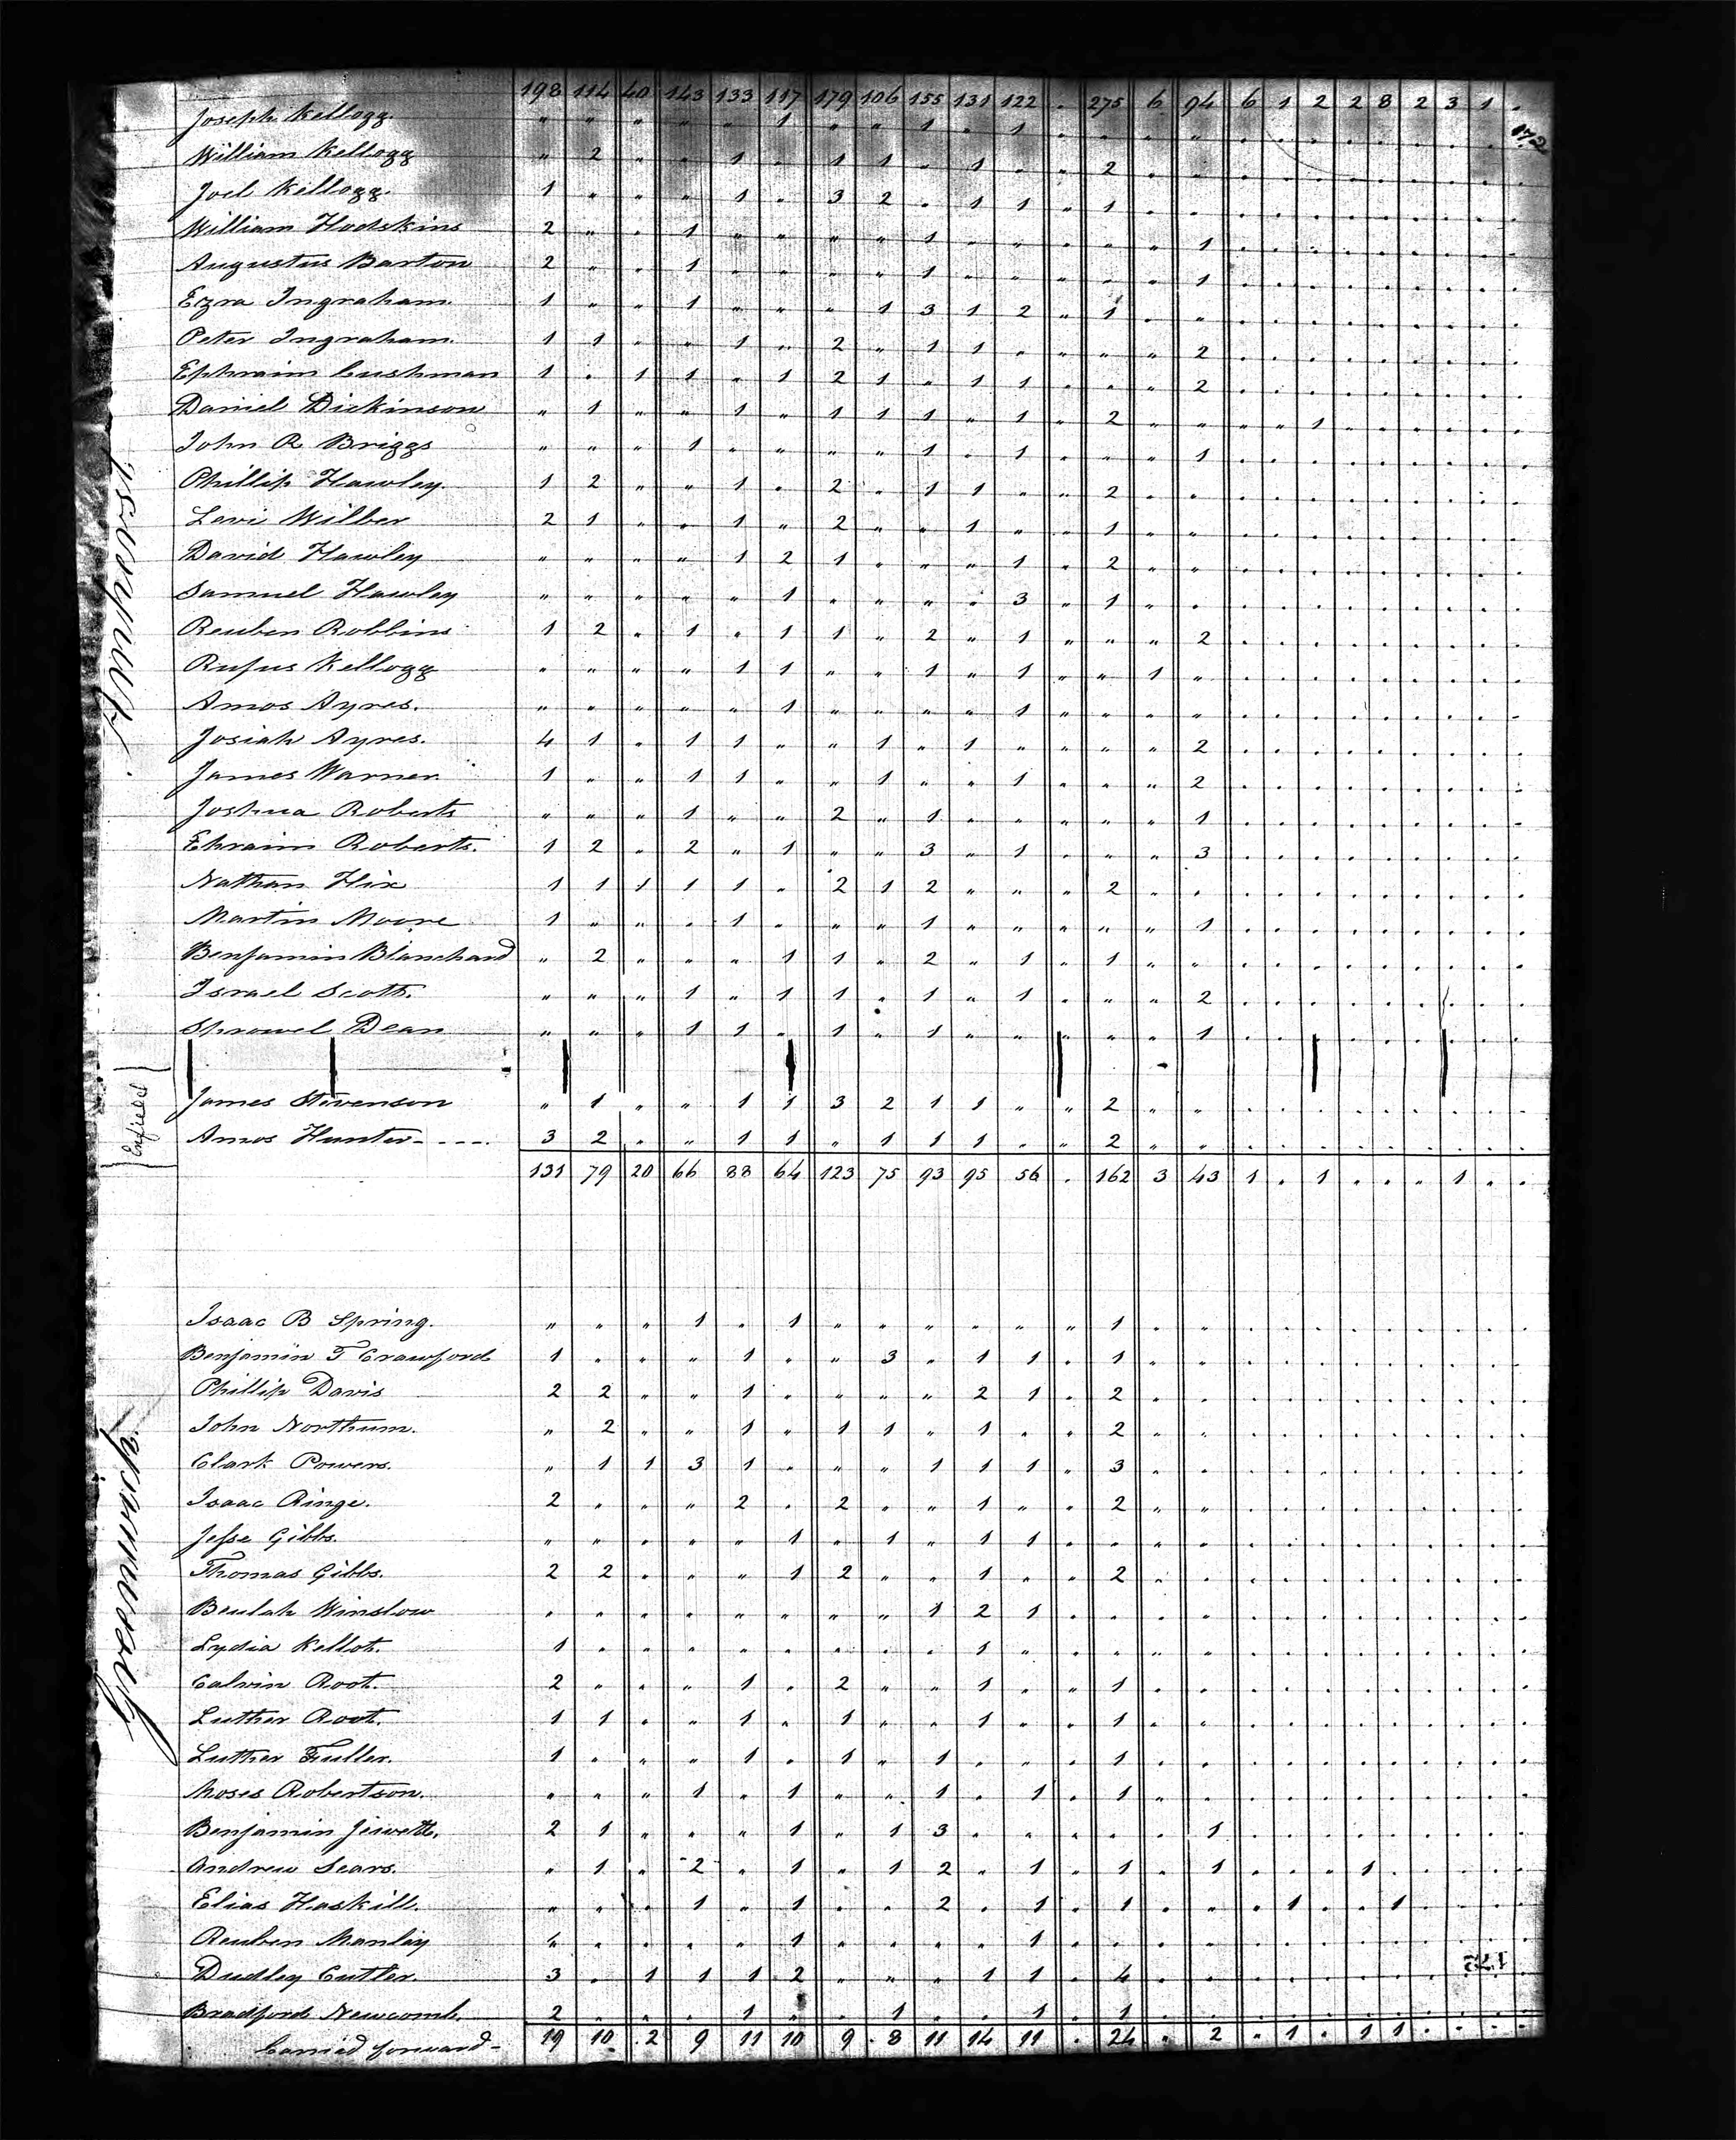 198 114 40 143 133 117 179 106 155 131 122 . 275 6 94 6 1 2 2 8 2 3 1 .
172
Joseph Kellogg. " " " " " 1 " " 1 . 1 . . . " . . . . . . . . .
William Kellogg " 2 " " 1 . 1 1 " 1 . " 2 . . . . . . . . . . .
Joel Kellogg. 1 " " " 1 . 3 2 . 1 1 " 1 . . . . . . . . . . .
William Hodskins 2 " . 1 " " " " 1 . " . " " 1 . . . . . . . . .
Augustus Barton 2 " . 1 " " " " 1 " " . " " 1 . . . . . . . . .
Ezra Ingraham. 1 " " 1 " " " 1 3 1 2 " 1 . " . . . . . . . . .
Peter Ingraham. 1 1 " " 1 " 2 " 1 1 . " " " 2 . . . . . . . . .
Ephraim Cushman 1 . 1 1 . 1 2 1 " 1 1 . . " 2 . . . . . . . . .
Daniel Dickinson " 1 " " 1 " 1 1 1 " 1 . 2 " " " " 1 . . . . . .
John R Briggs " " " 1 . " " " 1 . 1 . " " 1 . . . . . . . . .
Phillip Hawley. 1 2 " " 1 . 2 . 1 1 " " 2 . . . . . . . . . . .
Levi Wilber 2 1 " " 1 " 2 " " 1 " " 1 " " . . . . . . . . .
David Hawley " " " " 1 2 1 . " " 1 . 2 " " . . . . . . . . .
Samuel Hawley " " " " " 1 . " " . 3 " 1 " . . . . . . . . . .
Reuben Robbins 1 2 . 1 . 1 1 " 2 " 1 " " " 2 . . . . . . . . .
Rufus Kellogg " " " " 1 1 " " 1 " 1 " " 1 " . . . . . . . . .
Amos Ayres. " " " " " 1 " " " " 1 " " " " . . . . . . . . .
Josiah Ayres. 4 1 . 1 1 " " 1 " 1 " " " " 2 . . . . . . . . .
James Warner 1 " " 1 1 " " 1 " " 1 . . " 2 . . . . . . . . .
Joshua Roberts " " " 1 " " 2 " 1 . " " " " 1 . . . . . . . . .
Ehraim Roberts. 1 2 . 2 " 1 " " 3 . 1 . " . 3 . . . . . . . . .
Nathan Hix 1 1 1 1 1 . 2 1 2 " " " 2 . . . . . . . . . . .
Martin Moore 1 " " . 1 . " " 1 " " " " " 1 . . . . . . . . .
Benjamin Blanchard " 2 " " " 1 1 . 2 " 1 " 1 " " . . . . . . . . .
Israel Scott. " " " 1 " 1 1 . 1 " 1 . " " 2 . . . . . . . . .
Sprowel Dean " " " 1 1 " 1 " 1 " " " " " 1 . . . . . . . . .
Enfield
James Stevenson " 1 " " 1 1 3 2 1 1 " " 2 " " . . . . . . . . .
Amos Hunter - - - - 3 2 . " 1 1 . 1 1 1 . " 2 " " . . . . . . . . .
131 79 20 66 88 64 123 75 93 95 56 . 162 3 43 1 . 1 . . . 1 . .
Greenwich.
Isaac B Spring. " " " 1 . 1 " . " " " " 1 . " . . . . . . . . .
Benjamin F Crawford 1 . . " 1 . " 3 . 1 1 . 1 " " . . . . . . . . .
Phillip Davis 2 2 " " 1 . " . " 2 1 . 2 " . . . . . . . . . .
John Northum. " 2 " " 1 . 1 1 " 1 . . 2 " " . . . . . . . . .
Clark Powers. " 1 1 3 1 . " " 1 1 1 . 3 . . . . . . . . . . .
Isaac Ringe. 2 . . " 2 . 2 . " 1 " . 2 " " . . . . . . . . .
Jesse Gibbs. " " " . " 1 . 1 . 1 1 . . " . . . . . . . . . .
Thomas Gibbs. 2 2 . . " 1 2 " . 1 . " 2 . . . . . . . . . . .
Beulah Winslow . . . . " " " " 1 2 1 . . . . . . . . . . . . .
Lydia Kellot. 1 . . . " . . . . 1 " . . " " . . . . . . . . .
Calvin Root. 2 " . " 1 . 2 " " 1 . " 1 . . . . . . . . . . .
Luther Root. 1 1 . " 1 " 1 " . 1 . . 1 . . . . . . . . . . .
Luther Fuller. 1 . . " 1 . 1 " 1 . . . 1 . . . . . . . . . . .
Moses Robertson. . " " 1 . 1 " " 1 . 1 . 1 " . . . . . . . . . .
Benjamin Jewett. 2 1 " . " 1 . 1 3 . . . . . 1 . . . . . . . . .
Andrew Sears. . 1 . 2 . 1 . 1 2 " 1 . 1 . 1 . . . 1 . . . . .
Elias Haskill. " . . 1 " 1 . . 2 . 1 . 1 . . . 1 . . 1 . . . .
Reuben Manley . . . . 1 . . . . 1 . . . . . . . . . . . . .
Dudley Cutler. 3 . 1 1 1 2 . " . 1 1 . 4 . . . . . . . . . . .
Bradford Newcomb. 2 . . . 1 . . 1 . . 1 . 1 . . . . . . . . . . .
Carried forward - 19 10 2 9 11 10 9 8 11 14 11 . 24 . 2 . 1 . 1 1 . . . .